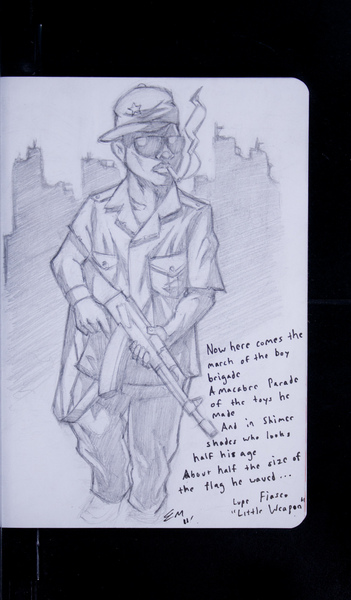 Now here comes the
march of the boy
brigade
A macabre Parade
of the toys he
made
And in Shimmer
shades who looks
half his age
About half the size of
the flag he waved...
Lupe Fiasco
"Little Weapon"
EM
11'